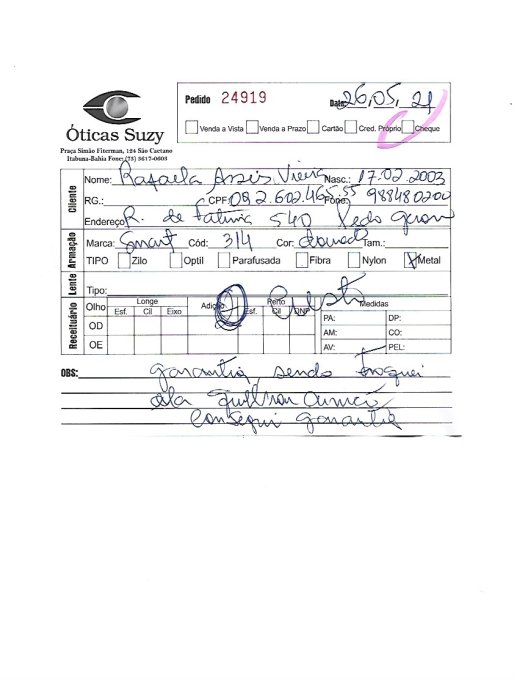 Pedido 24919
Data: 26,05,21
Óticas Suzy
Venda a Vista Venda a Prazo Cartão Cred. Próprio Cheque
Praça Simão Fiterman, 124 São Caetano
Itabuna-Bahia Fone: (73) 3617-0603
Cliente
Nome: Rafaela Assis Vieira Nasc.: 17.02.2003
RG.: CPF: 092.602.465.55 Fone: 988480200
Endereço: R. de Fatima 540
Armação
Marca: Smart Cód: 314 Cor: Tam.:
TIPO Zilo Optil Parafusada Fibra Nylon Metal
Lente
Tipo:
Receituário
Olho Longe Adição Perto Medidas
Esf. Cil Eixo Esf. Cil DNP
OD
OE
PA: DP:
AM: CO:
AV: PEL:
OBS: garantia, sendo troquei
ela
Consegui garantia